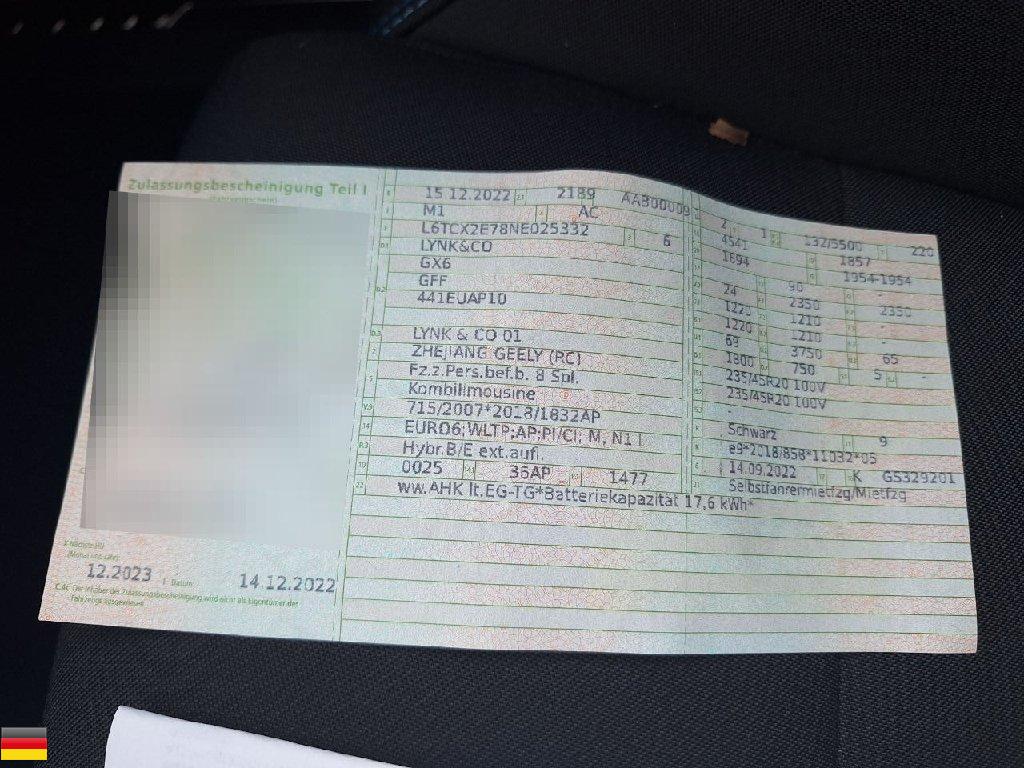 Zulassungsbescheinigung Teil I
15.12.2022 2189 AAB00009
M1 AC
L6TCX2E78NE025332 6
LYNK&CO
GX6
GFF
441EUAP10
LYNK & CO 01
ZHEJIANG GEELY (RC)
Fz.z.Pers.bef.b. 8 Spl.
Kombilimousine
715/2007*2018/1832AP
EURO6;WLTP;AP;PI/CI; M, N1 I
Hybr.B/E ext.aufl.
0025 36AP 1477
ww.AHK lt.EG-TG*Batteriekapazität 17,6 kWh*
2 1 132/5500 220
4541 1857
1694 1954-1954
24 90 -
1220 2350 2350
1220 1210 -
69 1210 -
1800 3750 65
750 5 -
235/45R20 100V
235/45R20 100V
-
Schwarz 9
e9*2018/858*11032*05
14.09.2022 K GS329201
Selbstfahrermietfzg/Mietfzg
12.2023 Datum 14.12.2022